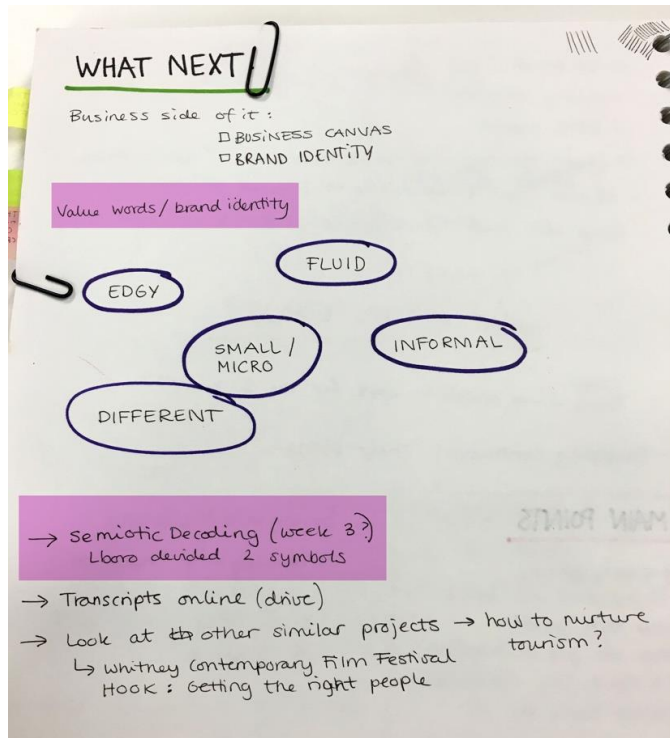 WHAT NEXT
Business side of it :
BUSINESS CANVAS
BRAND IDENTITY
Value words / brand identity
FLUID
EDGY
SMALL /
MICRO
INFORMAL
DIFFERENT
→ Semiotic Decoding (week 3?)
Lboro devided 2 symbols
MAIN POINTS
→ Transcripts online (drive)
→ Look at other similar projects → how to nurture
tourism?
↳ Whitney Contemporary Film Festival
HOOK : Getting the right people